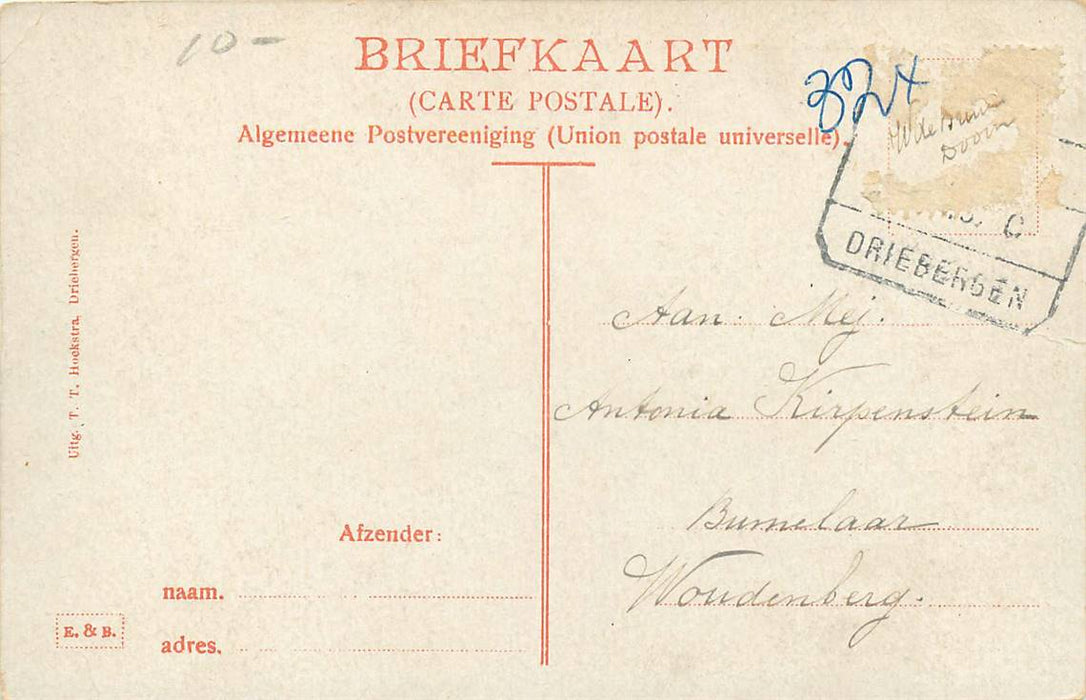 10-
BRIEFKAART
(CARTE POSTALE).
Algemeene Postvereeniging (Union postale universelle).
324
de
Doorn
C
DRIEBERGEN
Aan. Mej.
Antonia Kirpenstein
Bumelaar
Woudenberg.
Uitg. T. T. Hoekstra, Driebergen.
Afzender:
naam.
adres.
E. & B.